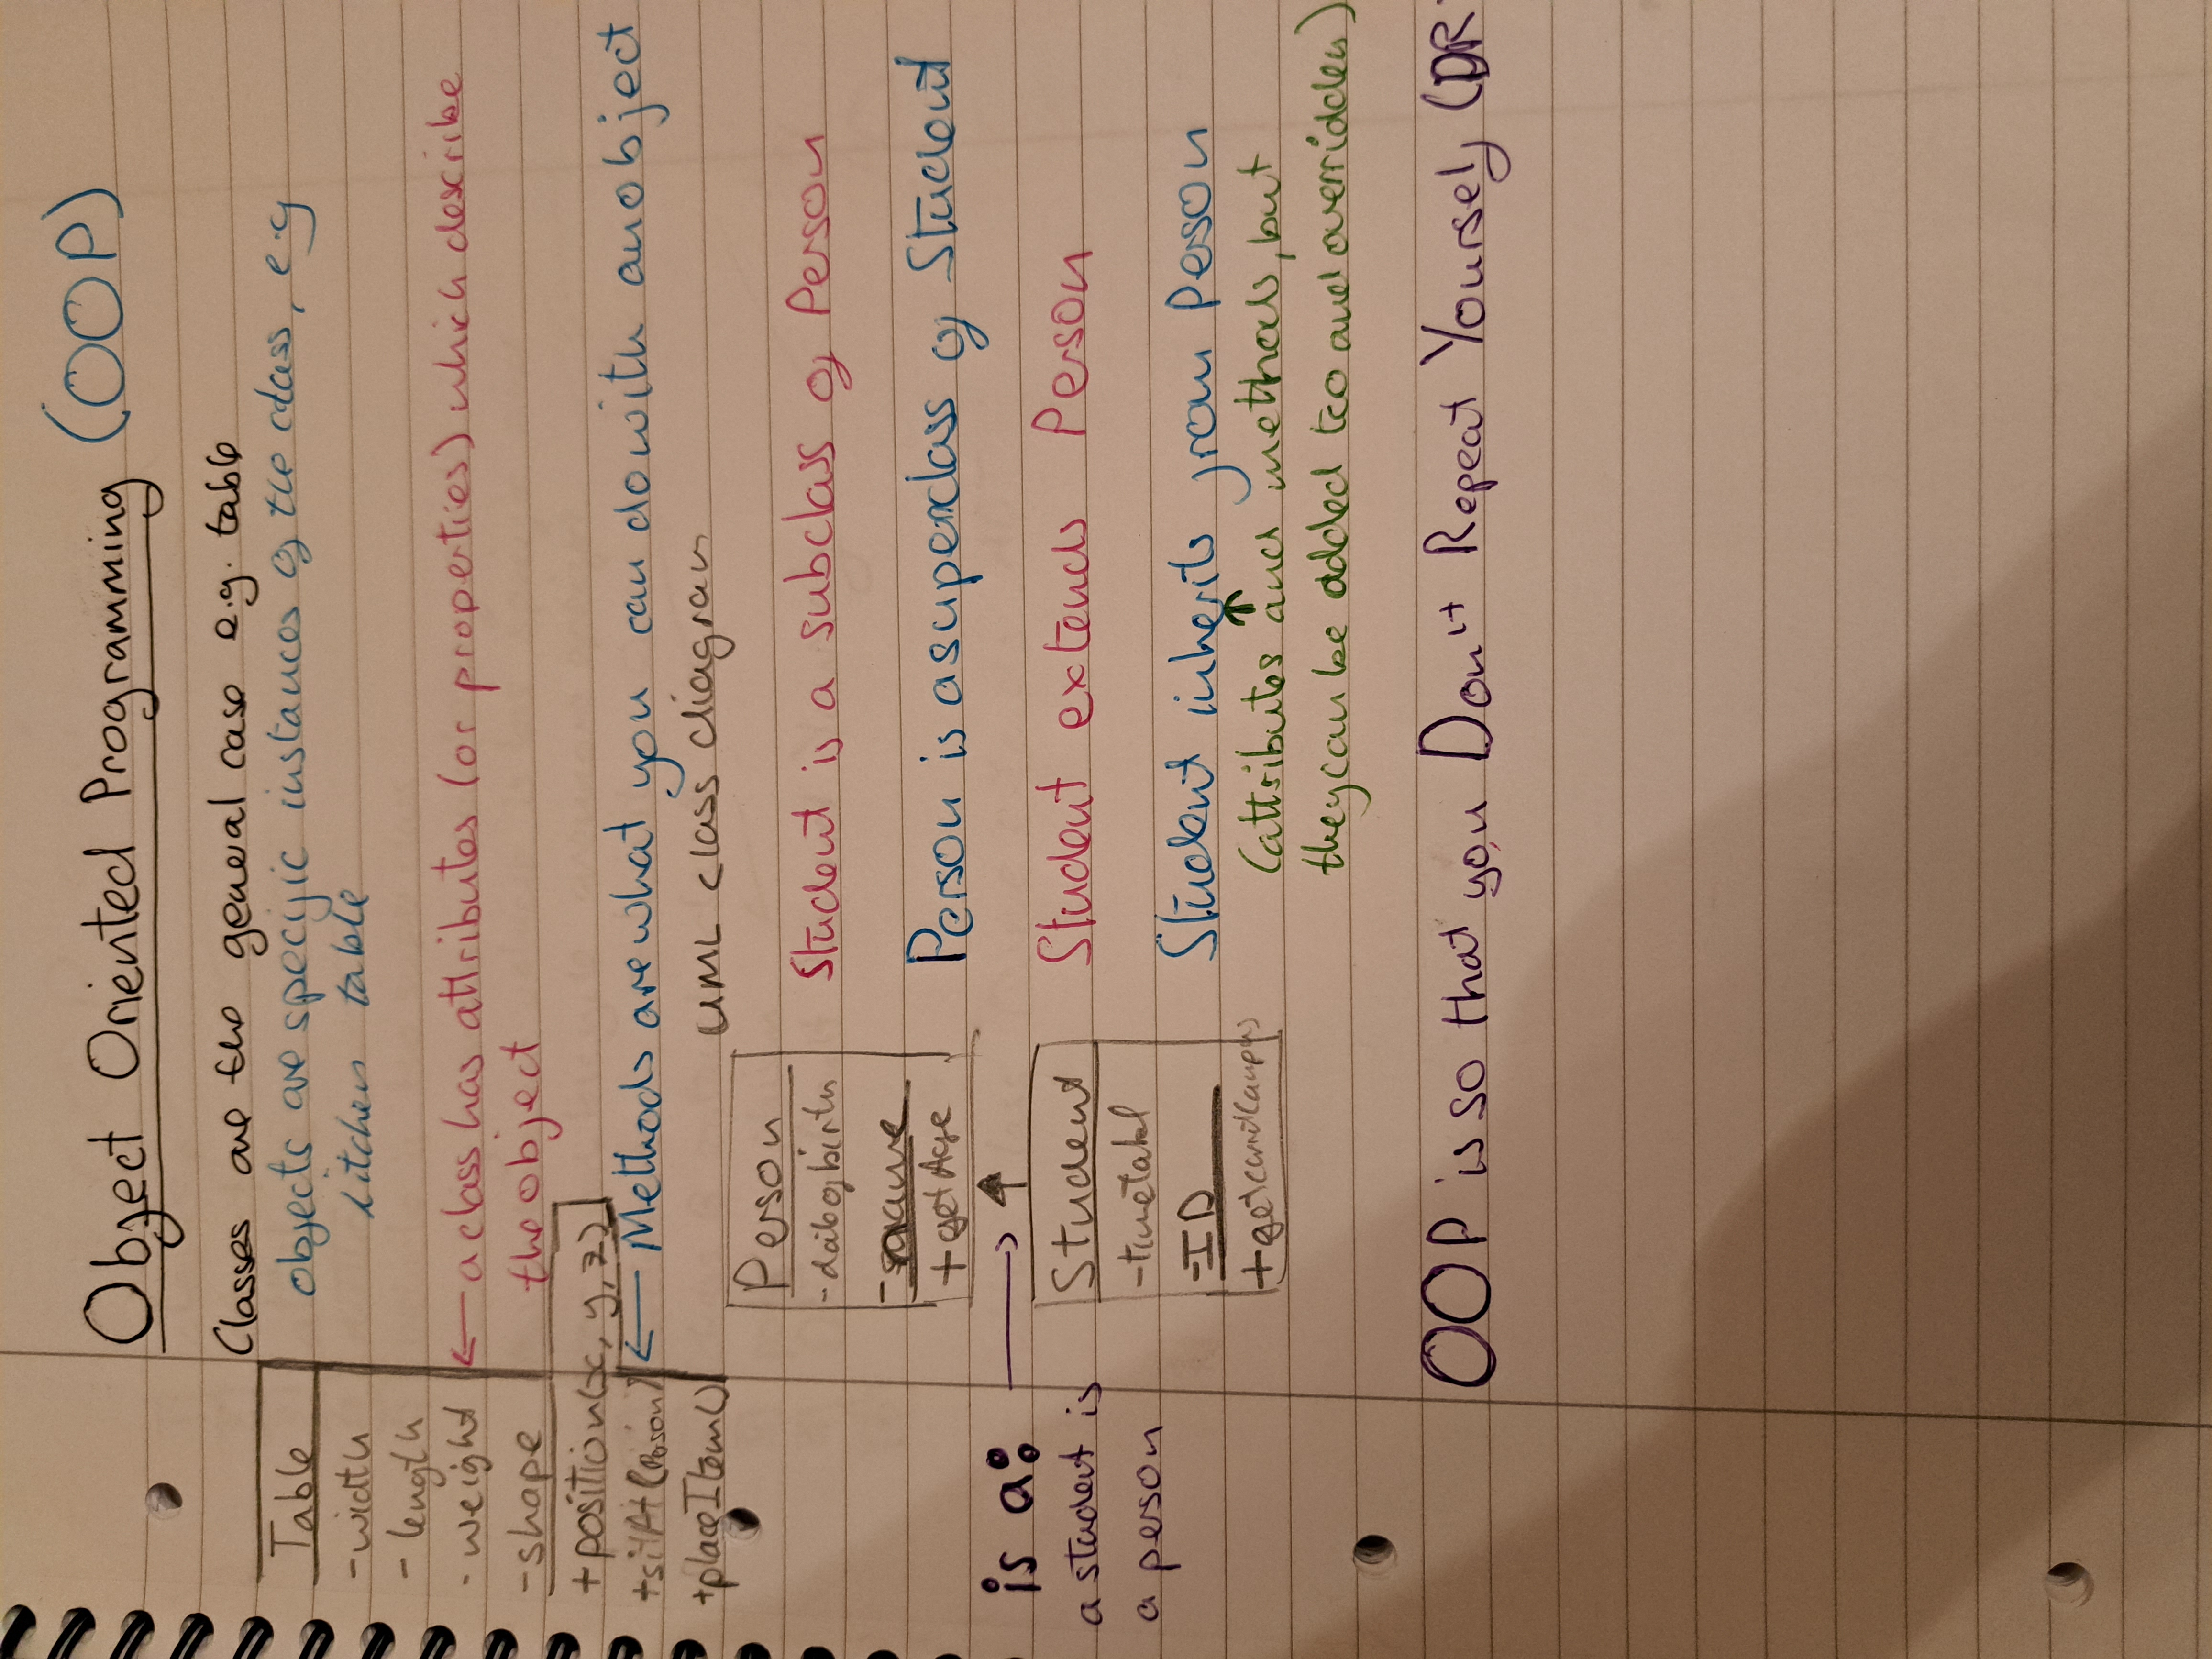 Object Oriented Programming (OOP)
Classes are the general case e.g. table
objects are specific instances of the class, e.g
kitchen table
Table
-width
- length
- weight
-shape
+position(x, y, z)
+sitAt(Person)
+placeItem()
← a class has attributes (or properties) which describe
the object
← Methods are what you can do with an object
UML class diagram
Person
-dateofbirth
-name
+getAge
Student is a subclass of Person
Person is a superclass of Student
is a:
a student is
a person
Student
-timetabl
-ID
Student extends Person
Student inherits from Person
(attributes and methods, but
they can be added too and overridden)
OOP is so that you Don't Repeat Yourself (DR